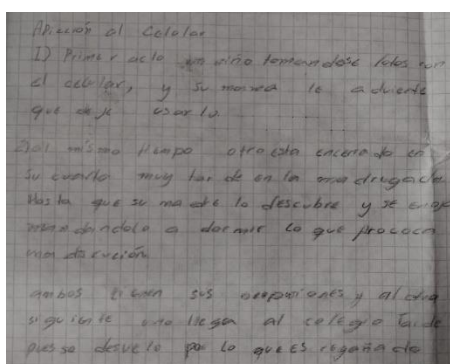 Adicción al Celular
1) Primer acto un niño tomandose fotos con
el celular, y su mamá le advierte
que deje usarlo.
2) al mismo tiempo otro esta encerrado en
su cuarto muy tarde en la madrugada
Hasta que su madre lo descubre y se enoja
mandandolo a dormir lo que provoca
una discución
ambos tienen sus ocupaciones y al dia
siguiente uno llega al colegio tarde
pues se desvelo por lo que es regañado